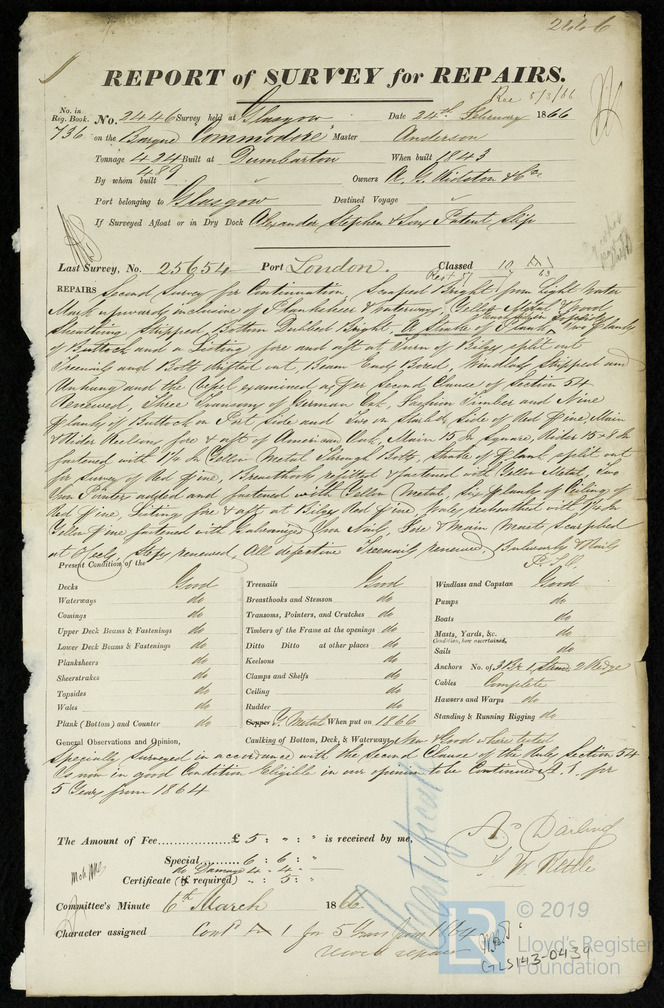 2446
REPORT of SURVEY for REPAIRS.
Rec 5/3/66
No. in Reg. Book.
No. 2446 Survey held at Glasgow Date 24th February 1866
736 on the Barque "Commodore" Master Anderson
Tonnage 424 Built at Dumbarton When built 1843
489
By whom built Owners
Port belonging to Glasgow Destined Voyage
If Surveyed Afloat or in Dry Dock Alexander Stephen & Sons Patent Slip
Last Survey, No. 25654 Port London. Classed 10 A1
63
REPAIRS Second Survey for Continuation, Scraped Bright from Light Water
Mark upwards inclusive of Plansheers & Waterways Yellow Metal & Wood
Sheathing Stripped, Bottom Bright, A Strake of Plank Two Planks
of Buttock and a Listing fore and aft at Turn of Bilge split out
Treenails and Bolts drifted out, Beam Ends Bored, Windlass Stripped and
Unhung and the Vessel examined as per second Clause of Section 54
Renewed, Three Transoms of German Oak, Fashion Timber and Nine
Planks of Buttock on Port Side and Two on Starbd Side of Red Pine, Main
& Rider Keelsons fore & aft of American Oak, Main 15 In Square, Rider 15 x 8 In
fastened with 1 1/8 In Yellow Metal Through Bolts, Strake of Plank split out
for Survey of Red Pine, Breasthooks refitted & fastened with Yellow Metal, Two
Iron Pointers added and fastened with Yellow Metal, Six Planks of Ceiling of
Red Pine, Listing fore & aft at Bilge Red Pine, resheathed with
Yellow Pine fastened with Galvanized Iron Nails, Fore & Main Masts scarphed
at Heels, Steps renewed, All defective Treenails renewed, Bulwarks & Rails
P.T.O.
Present Condition of the
Decks Good
Waterways do
Comings do
Upper Deck Beams & Fastenings do
Lower Deck Beams & Fastenings do
Planksheers do
Sheerstrakes do
Topsides do
Wales do
Plank (Bottom) and Counter do
Treenails Good
Breasthooks and Stemson do
Transoms, Pointers, and Crutches do
Timbers of the Frame at the openings do
Ditto Ditto at other places do
Keelsons do
Clamps and Shelfs do
Ceiling do
Rudder do
Copper Y. Metal When put on 1866
Caulking of Bottom, Deck, & Waterways New & Good where tested
Windlass and Capstan Good
Pumps do
Boats do
Masts, Yards, &c. do
Condition, how ascertained,
Sails do
Anchors No. of 3 Br 1 Stream 2 Kedge
Cables Complete
Hawsers and Warps do
Standing & Running Rigging do
General Observations and Opinion,
Specially Surveyed in accordance with the Second Clause of the Rules Section 54
Is now in good Condition Eligible in our opinion to be Continued A.1. for
5 Years from 1864
The Amount of Fee £ 5 : " : " is received by me,
Special 6 : 6 : "
do Damage 4 : 4 : "
Certificate (if required) " : 5 : "
Certificate
As Darling
Committee's Minute 6th March 1866.
Character assigned Contd A 1 for 5 Years from 1864
© 2019
LR
Lloyd's Register
Foundation
GLS143-0439